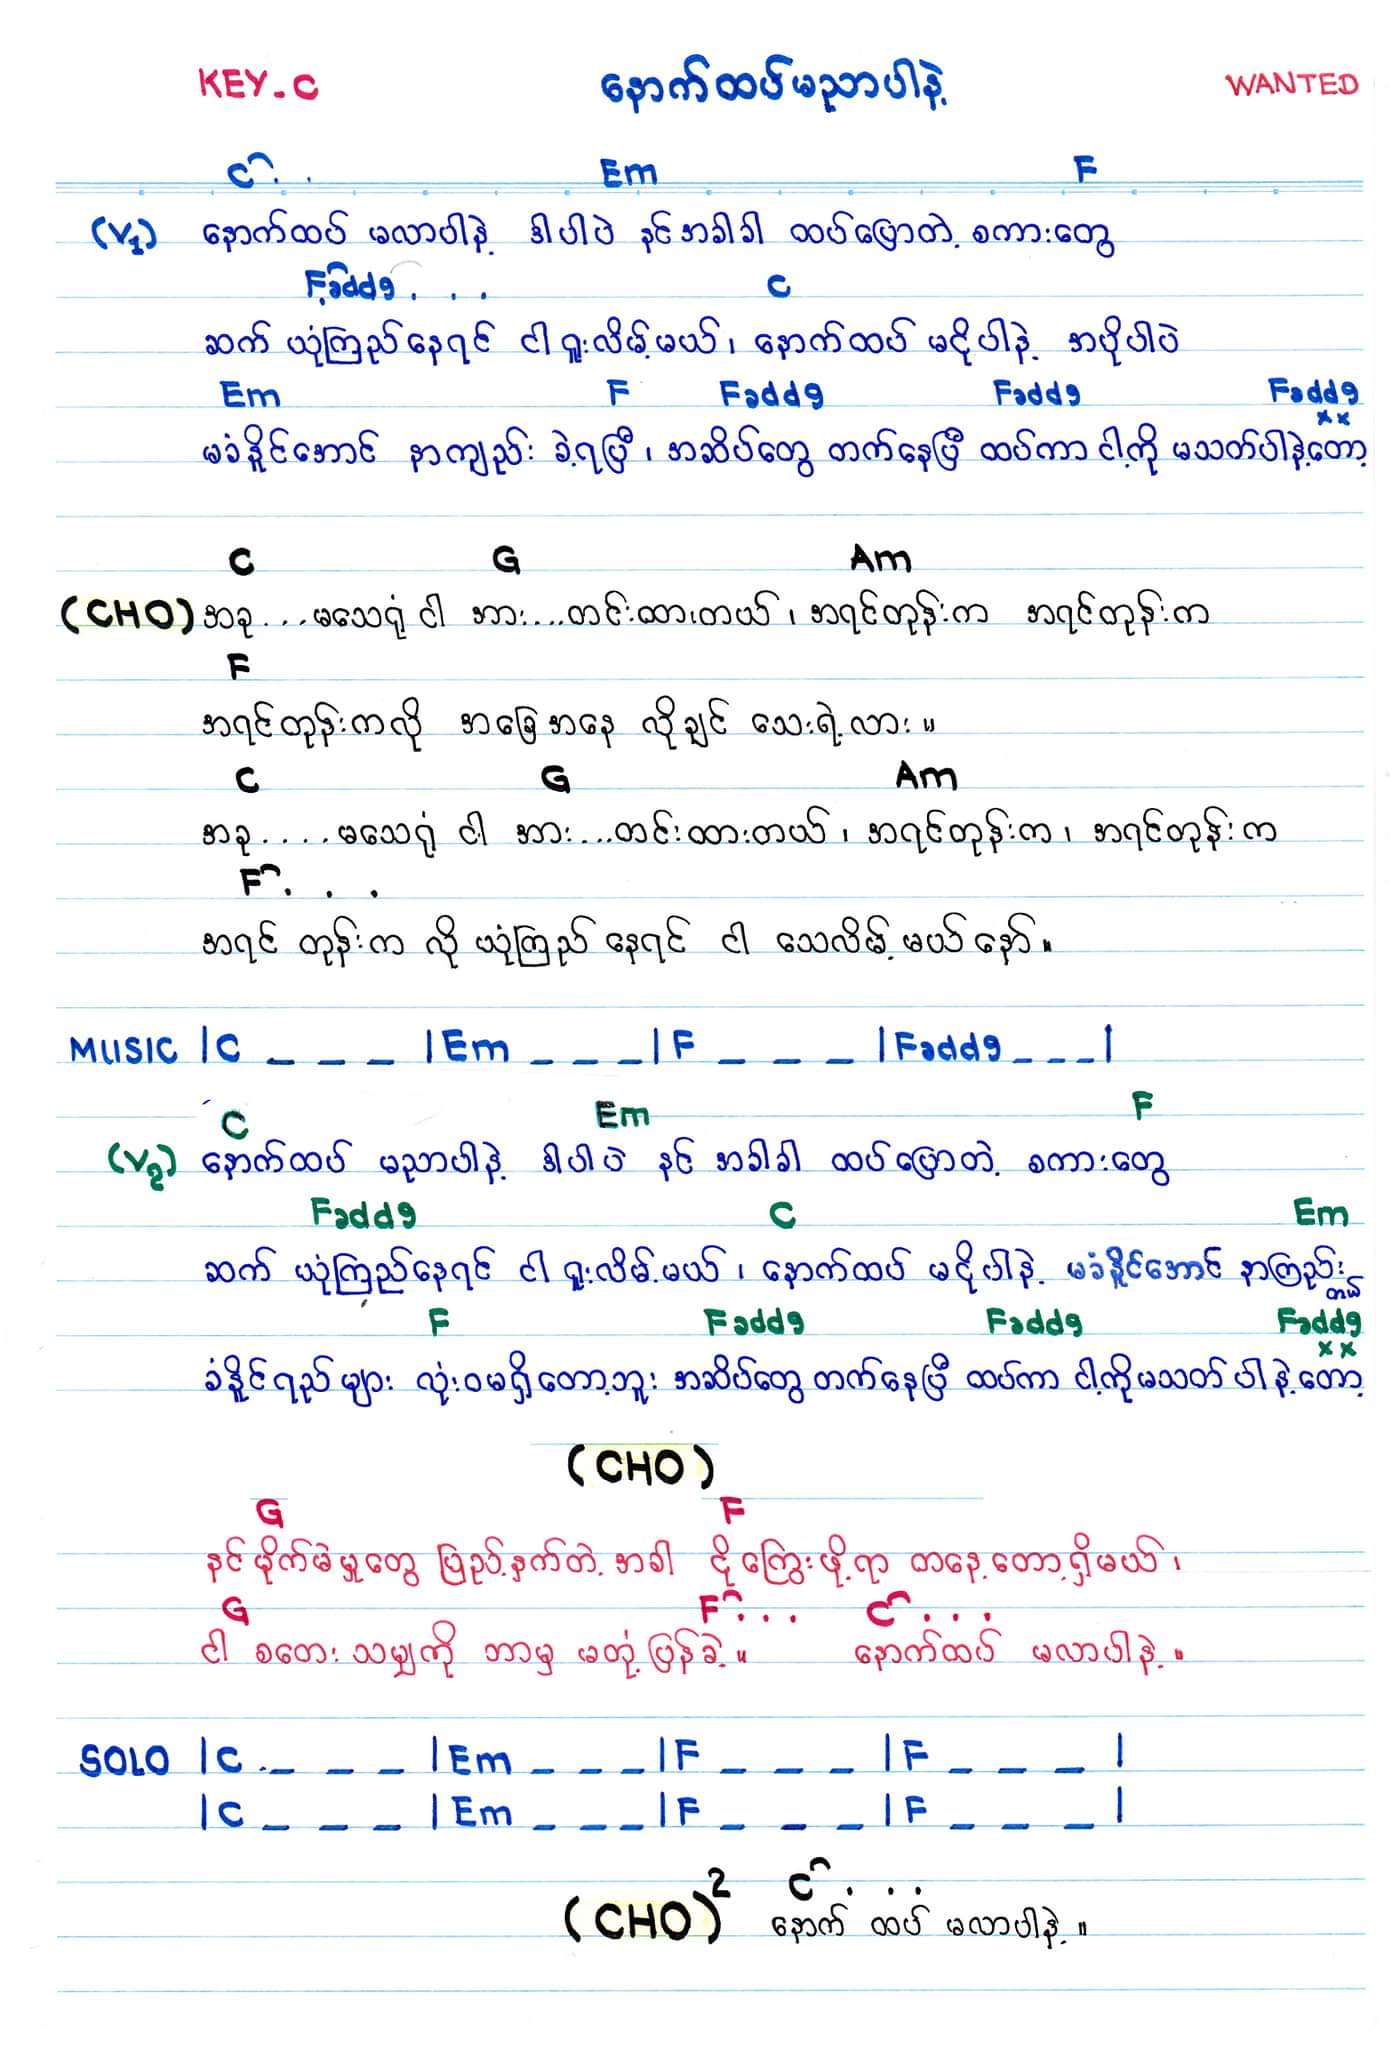 KEY-C နောက်ထပ်မညာပါနဲ့ WANTED
C . . Em F
(V1) နောက်ထပ် မလာပါနဲ့ ဒါပါပဲ နင်အခါခါ ထပ်ပြောတဲ့ စကားတွေ
Fadd9 . . . C
ဆက် ယုံကြည်နေရင် ငါ ရူးလိမ့်မယ်၊ နောက်ထပ် မငိုပါနဲ့ အပိုပါပဲ
Em F Fadd9 Fadd9 Fadd9
x x
မခံနိူင်အောင် နာကျည်း ခဲ့ရပြီ၊ အဆိပ်တွေ တက်နေပြီ ထပ်ကာ ငါ့ကို မသတ်ပါနဲ့တော့
C G Am
(CHO) အခု ... မသေရုံ ငါ အား....တင်းထားတယ်၊ အရင်တုန်းက အရင်တုန်းက
F
အရင်တုန်းကလို အခြေအနေ လိုချင် သေးရဲ့လား။
C G Am
အခု .... မသေရုံ ငါ အား....တင်းထားတယ်၊ အရင်တုန်းက၊ အရင်တုန်းက
F . . .
အရင် တုန်းက လို ယုံကြည် နေရင် ငါ သေလိမ့်မယ်နော်။
MUSIC |C _ _ _ |Em _ _ _ |F _ _ _ |Fadd9 _ _ _ |
C Em F
(V2) နောက်ထပ် မညာပါနဲ့ ဒါပါပဲ နင် အခါခါ ထပ်ပြောတဲ့ စကားတွေ
Fadd9 C Em
ဆက် ယုံကြည်နေရင် ငါ ရူးလိမ့်မယ်၊ နောက်ထပ် မငိုပါနဲ့ မခံနိူင်အောင် နာကြည်းတယ်
F Fadd9 Fadd9 Fadd9
x x
ခံနိူင်ရည်များ လုံးဝမရှိတော့ဘူး အဆိပ်တွေ တက်နေပြီ ထပ်ကာ ငါ့ကိုမသတ်ပါနဲ့တော့
(CHO)
G F
နင် မိုက်မဲမှုတွေ ပြည့်နှက်တဲ့ အခါ ငိုကြွေးဖို့ရာ တနေ့တော့ရှိမယ်၊
G F . . . C . . .
ငါ စတေးသမျှကို ဘာမှ မတုံ့ပြန်ခဲ့။ နောက်ထပ် မလာပါနဲ့။
SOLO |C _ _ _ |Em _ _ _ |F _ _ _ |F _ _ _ |
|C _ _ _ |Em _ _ _ |F _ _ _ |F _ _ _ |
C . . .
(CHO)2 နောက် ထပ် မလာပါနဲ့။